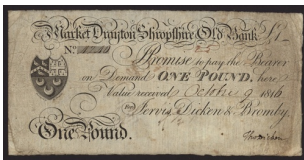 Market Drayton Shropshire Old Bank £1
No
I Promise to pay the Bearer
on Demand ONE POUND, here
Value received October 9 1816
For Jervis, Dicken & Bromby.
One Pound.